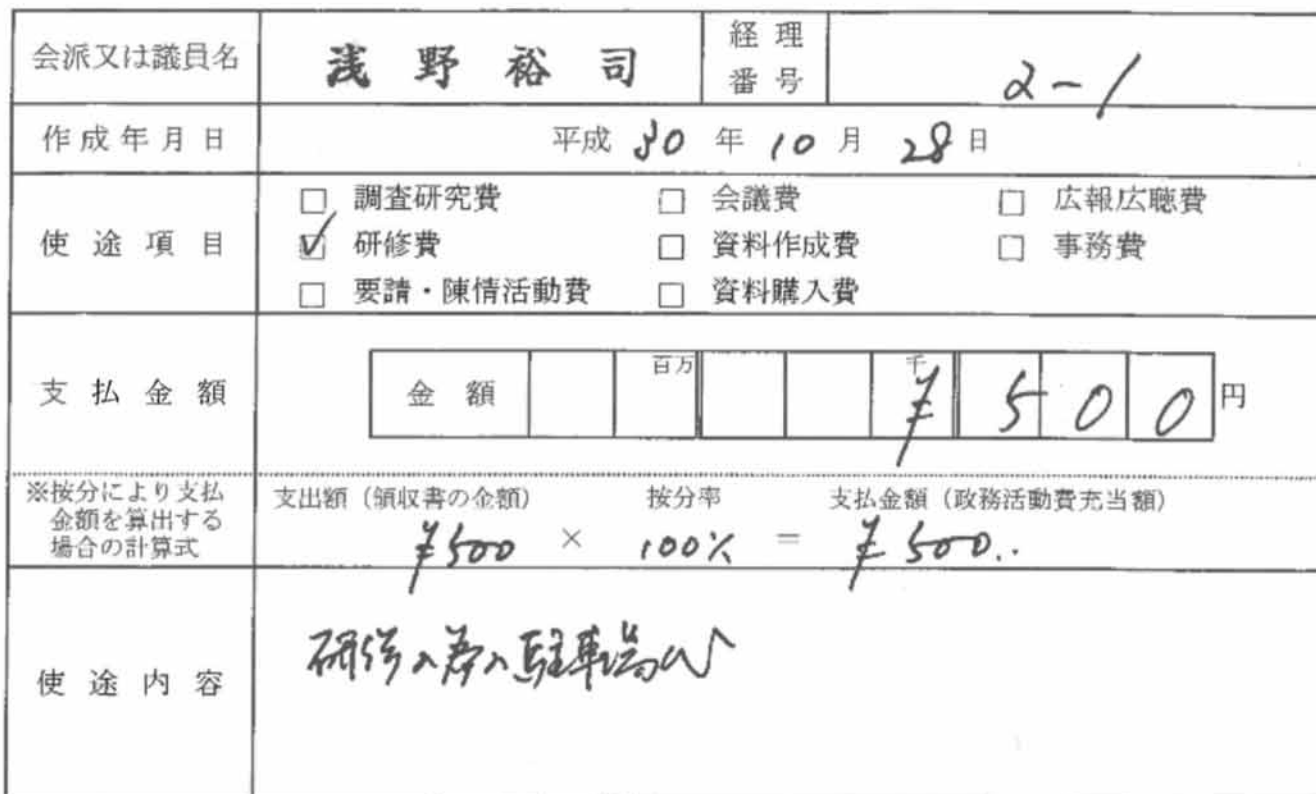 会派又は議員名 浅野裕司 経理番号 2-1
作成年月日 平成 30 年 10 月 28 日
使途項目
□ 調査研究費 □ 会議費 □ 広報広聴費
☑ 研修費 □ 資料作成費 □ 事務費
□ 要請・陳情活動費 □ 資料購入費
支払金額 金額 百万 千 ¥500 円
※按分により支払金額を算出する場合の計算式
支出額（領収書の金額） 按分率 支払金額（政務活動費充当額）
¥500 × 100% = ¥500..
使途内容 研修の為の駐車場代